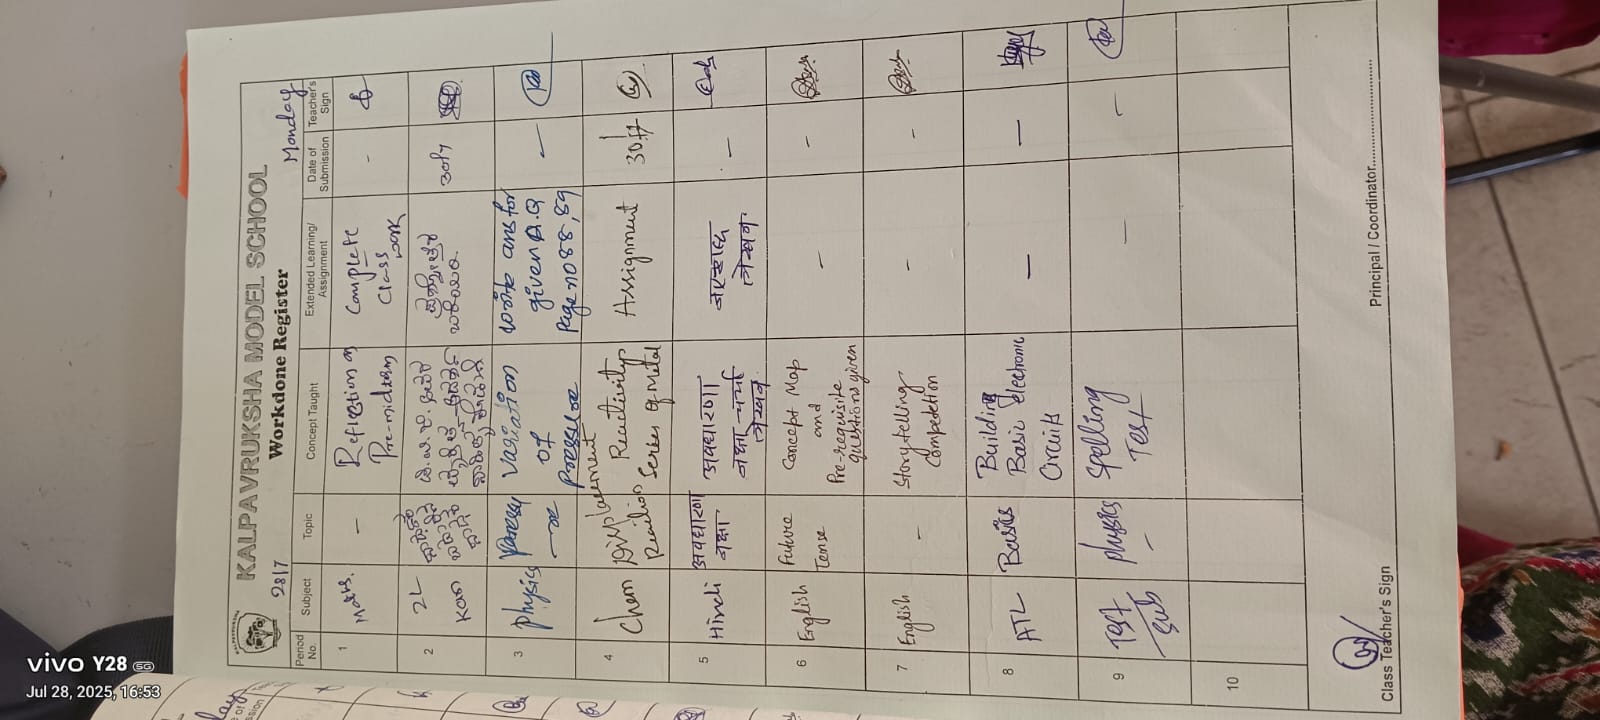 KALPAVRUKSHA MODEL SCHOOL
Workdone Register
28/7
Monday
Period No. Subject Topic Concept Taught Extended Learning/ Assignment Date of Submission Teacher's Sign
1 Maths. - Reflection on Pre-midterm Complete Class work -
2 2L Kan 30/7
3 Physics Variation of Pressure write ans for given Q.Q Page no 88, 89 -
4 Chem Displacement Reaction Reactivity Series of Metal Assignment 30/7
5 Hindi अवधारणा नक्षा अवधारणा लेखन -
6 English Future Tense Concept Map and Pre-requisite questions given - -
7 English - Storytelling Competetion - -
8 ATL Basics Building Basic electronic Circuits - -
9 Test Sub Physics - Spelling Test - -
10
Class Teacher's Sign
Principal / Coordinator
vivo Y28 5G
Jul 28, 2025, 16:53